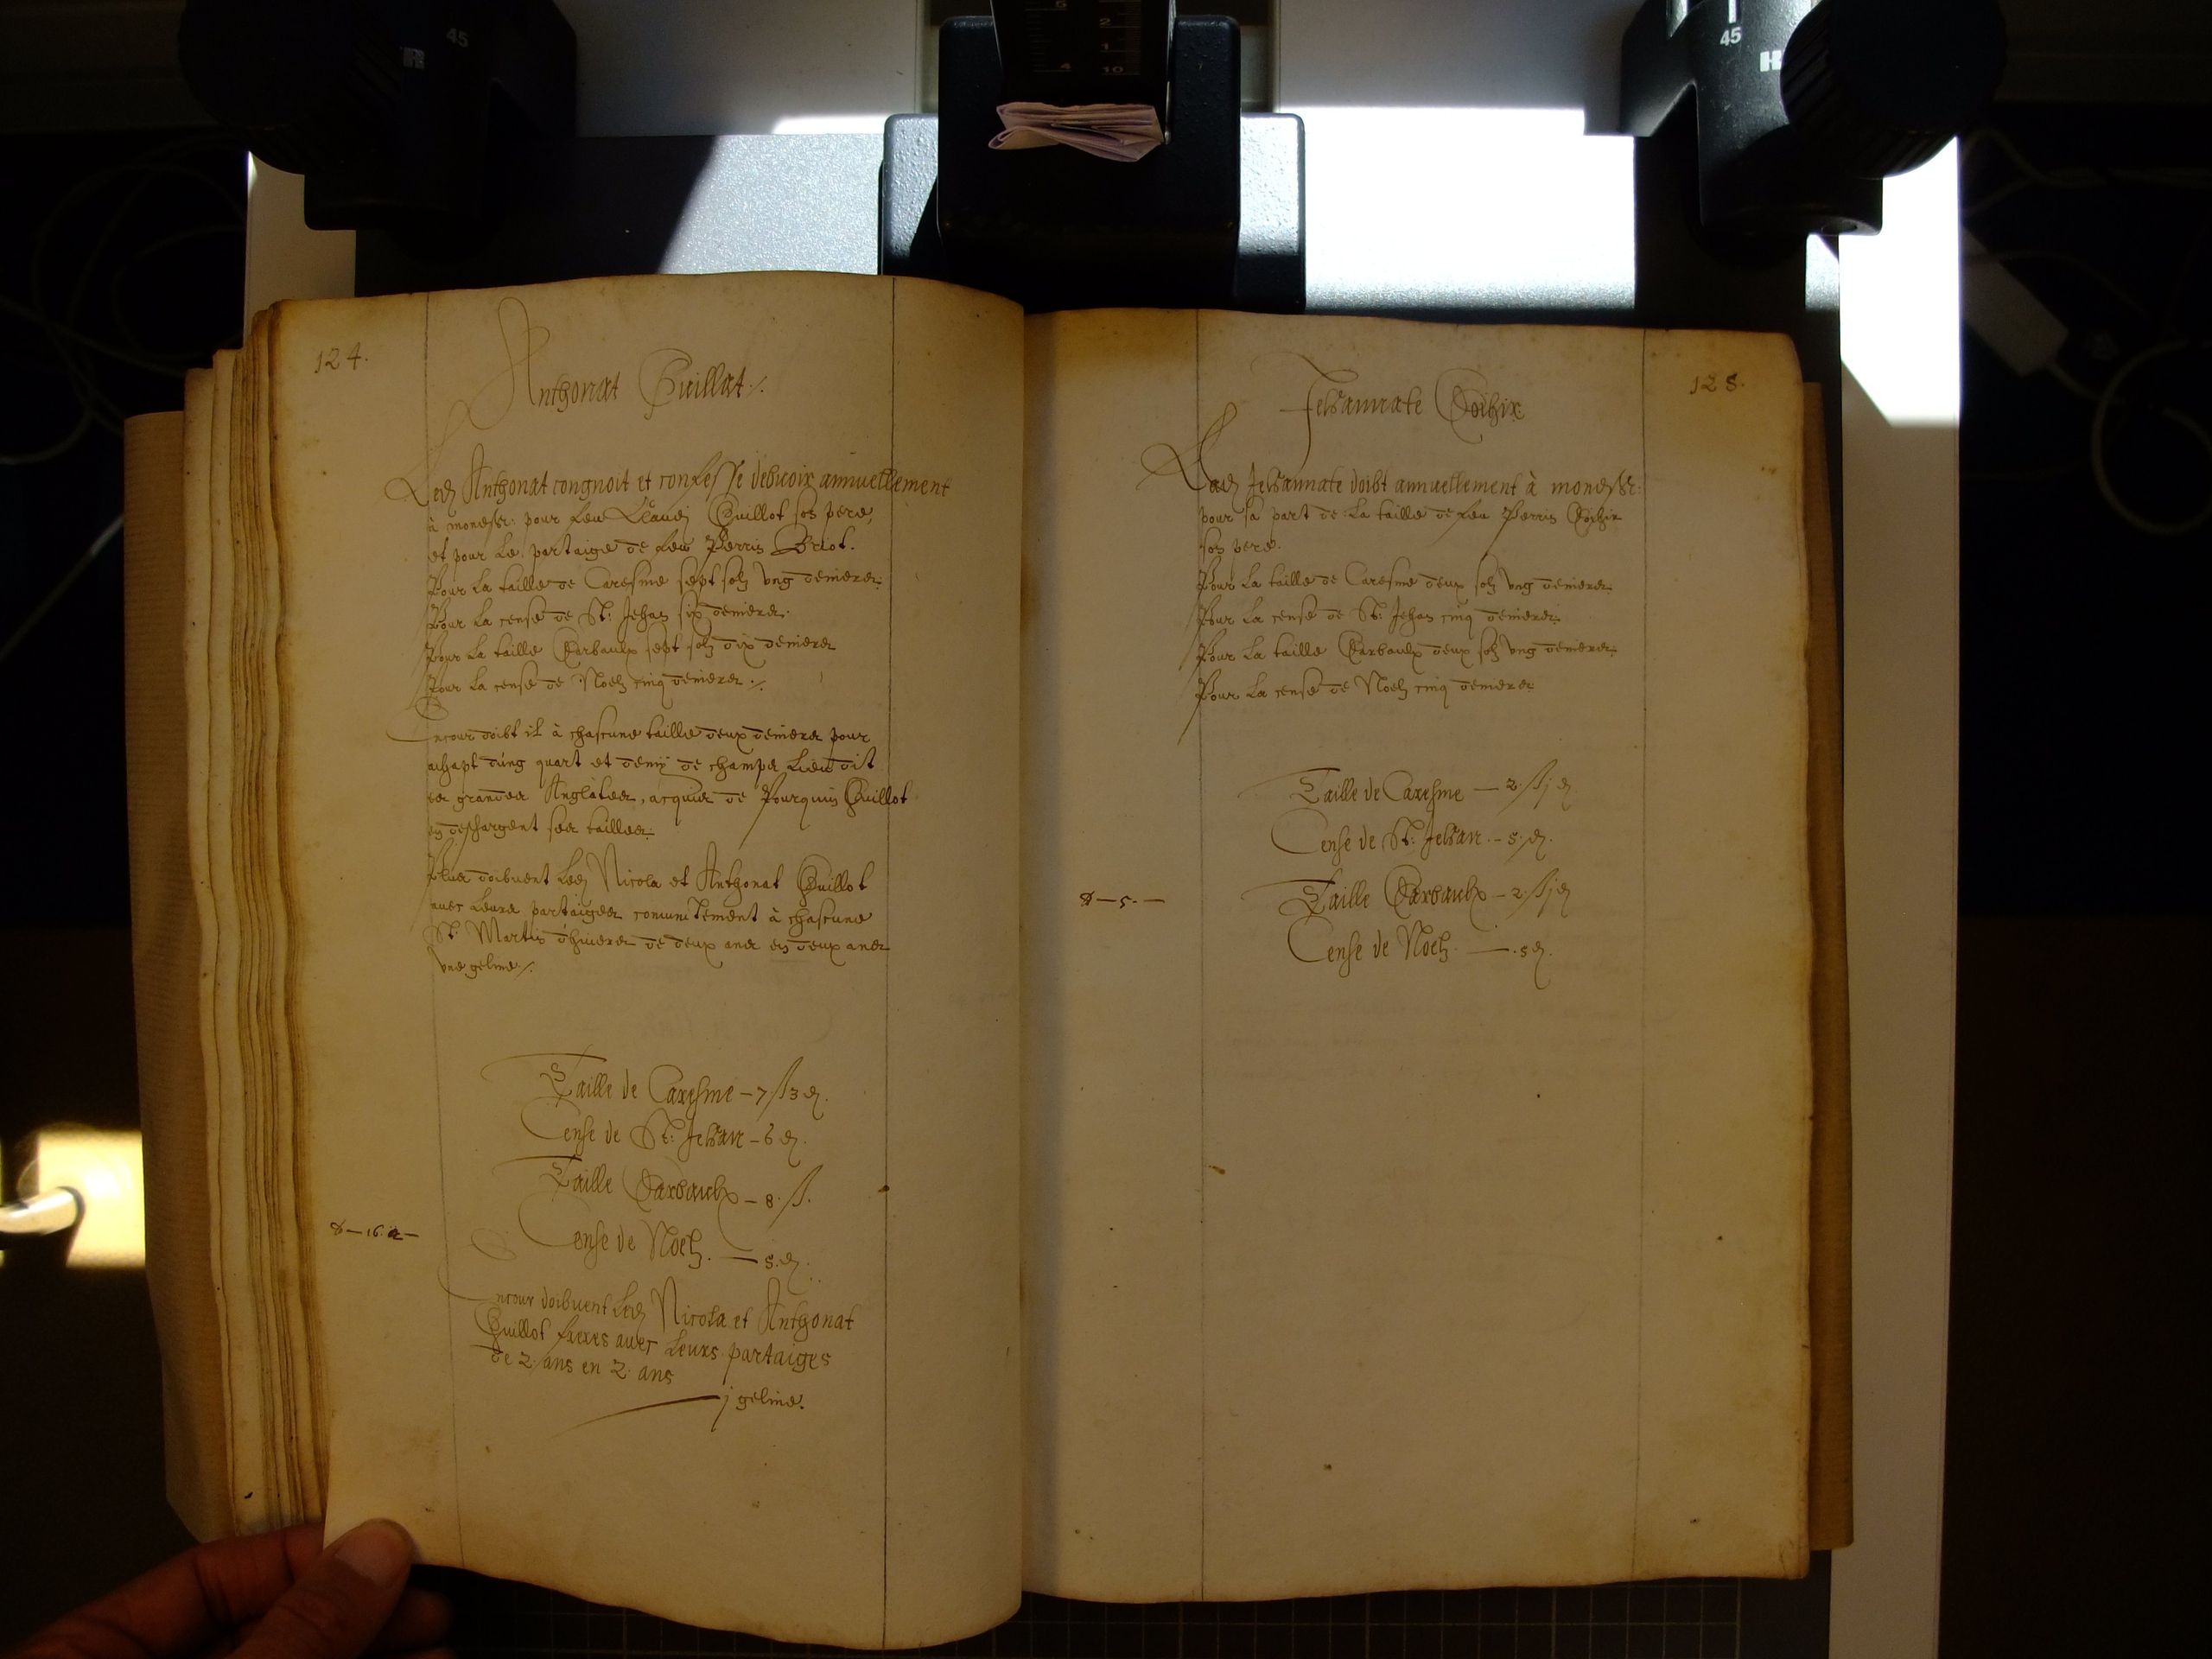 124.
Anthonat Guillat
Led Anthonat congnoit et confesse debuoir annuellement
à monsr: pour feu Claudi Guillot son pere,
et pour le partaige de feu Perrin Briot.
Pour la taille de Caresme sept solz ung deniers.
Pour la cense de St: Jehan six deniers.
Pour la taille Barbaulx sept solz dix deniers
Pour la cense de Noelz cinq deniers
Encour doibt il à chascune taille deux deniers pour
achapt d'ung quart et demy de champs lieu dit
es grandes Anglates, acquis de Pourquin Guillot
en deschargent ses tailles.
Plus doibuent Led Nicola et Anthonat Guillot
auec leurs partaiges comunement à chascune
St: Martin d'hiuers de deux ans en deux ans
une geline
Taille de Caresme - 7 ß 3 d.
Cense de St: Jehan - 6 d.
Taille Barbaulx - 8 ß.
Cense de Noelz. - 5. d.
16
Encour doibuent Led Nicola et Anthonat
Guillot freres auec leurs partaiges
de 2 ans en 2 ans
j geline.
125.
Jehannate
Lad Jehannate doibt annuellement à monsr:
pour sa part de la taille de feu Perrin
son pere.
Pour la taille de Caresme deux solz ung deniers
Pour la cense de St: Jehan cinq deniers.
Pour la taille Barbaulx deux solz ung deniers.
Pour la cense de Noelz cinq deniers
Taille de Caresme - 2 ß j d
Cense de St: Jehan. - 5. d.
Taille Barbaulx - 2 ß j d
5.
Cense de Noelz - 5 d.